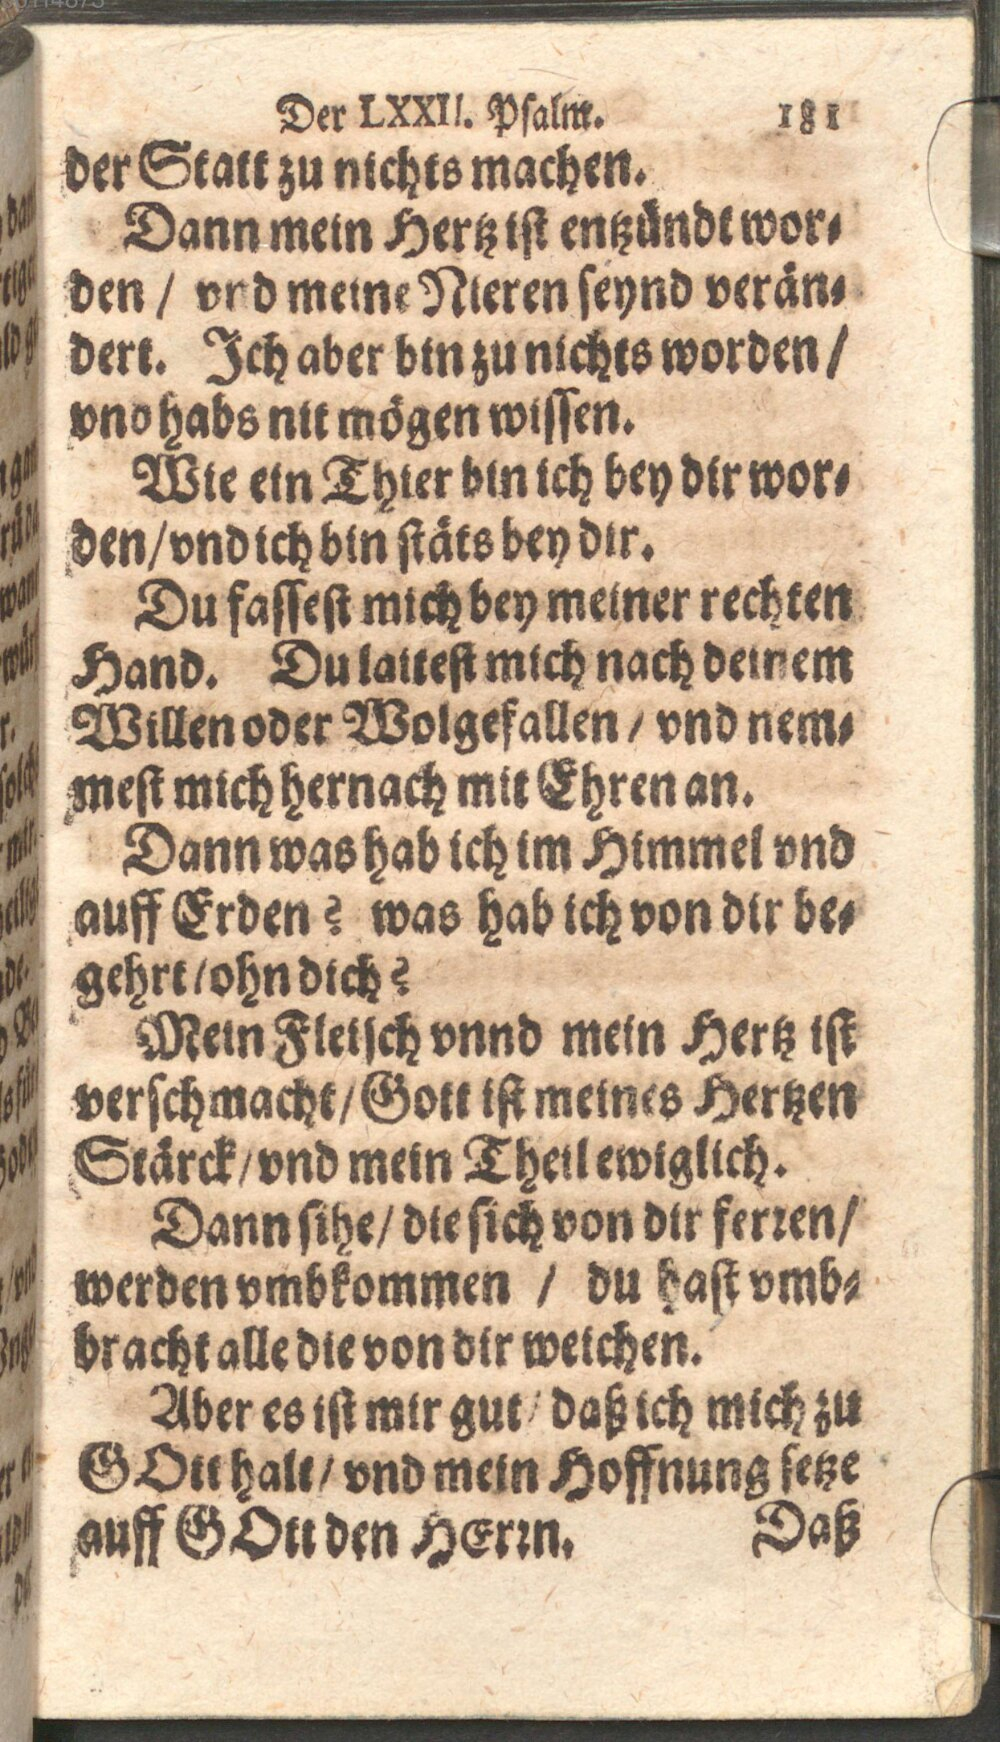 Der LXXII. Psalm. 181
der Statt zu nichts machen.
Dann mein Hertz ist entzündt wor-
den / vnd meine Nieren seynd verän-
dert. Ich aber bin zu nichts worden /
vnd habs nit mögen wissen.
Wie ein Thier bin ich bey dir wor-
den / vnd ich bin stäts bey dir.
Du fassest mich bey meiner rechten
Hand. Du laitest mich nach deinem
Willen oder Wolgefallen / vnd nem-
mest mich hernach mit Ehren an.
Dann was hab ich im Himmel vnd
auff Erden? was hab ich von dir be-
gehrt / ohn dich?
Mein Fleisch vnnd mein Hertz ist
verschmacht / Gott ist meines Hertzen
Stärck / vnd mein Theil ewiglich.
Dann sihe / die sich von dir ferren /
werden vmbkommen / du hast vmb-
bracht alle die von dir weichen.
Aber es ist mir gut / daß ich mich zu
GOtt halt / vnd mein Hoffnung setze
auff GOtt den HErrn. Daß